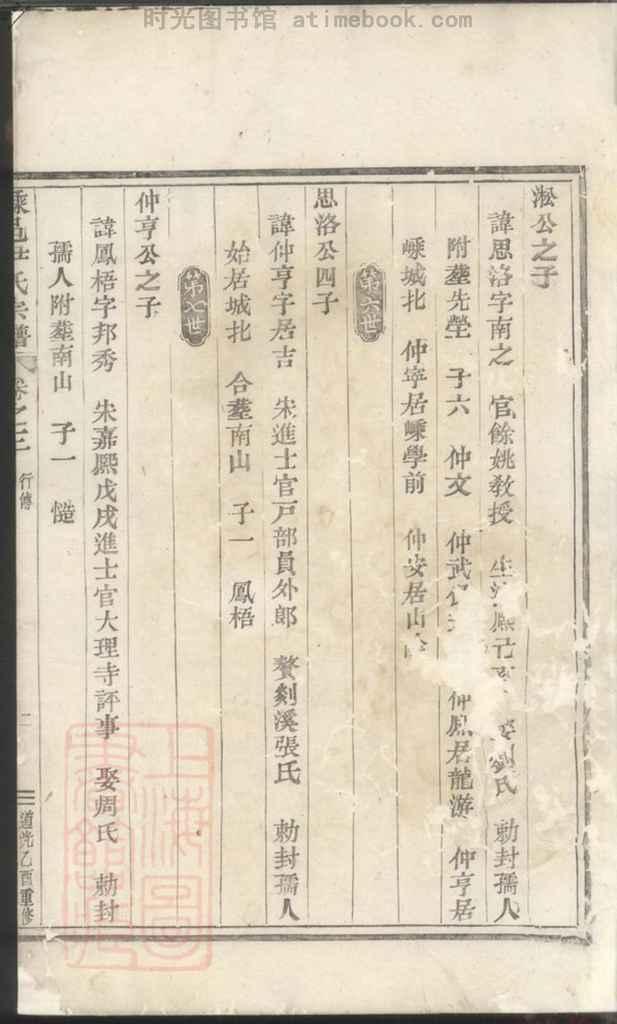 时光图书馆 atimebook.com
淞公之子
諱思洛字南之 官餘姚敎授 娶劉氏 勅封孺人
附塟先塋 子六 仲文 仲武 仲鳳居龍游 仲亨居
嵊城北 仲寧居嵊學前 仲安居山
第六世
思洛公四子
諱仲亨字居吉 宋進士官戸部員外郎 贅剡溪張氏 勅封孺人
始居城北 合塟南山 子一 鳳梧
第七世
仲亨公之子
諱鳳梧字邦秀 宋嘉熙戊戌進士官大理寺評事 娶周氏 勅封
孺人附塟南山 子一 慥
氏宗譜 卷之 行傳 二 道光乙酉重修
上海圖書館藏